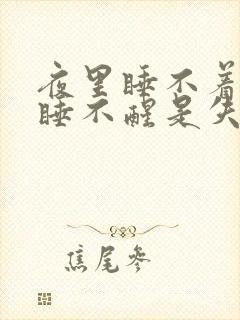 夜里睡不着
睡不醒是失
焦尾参